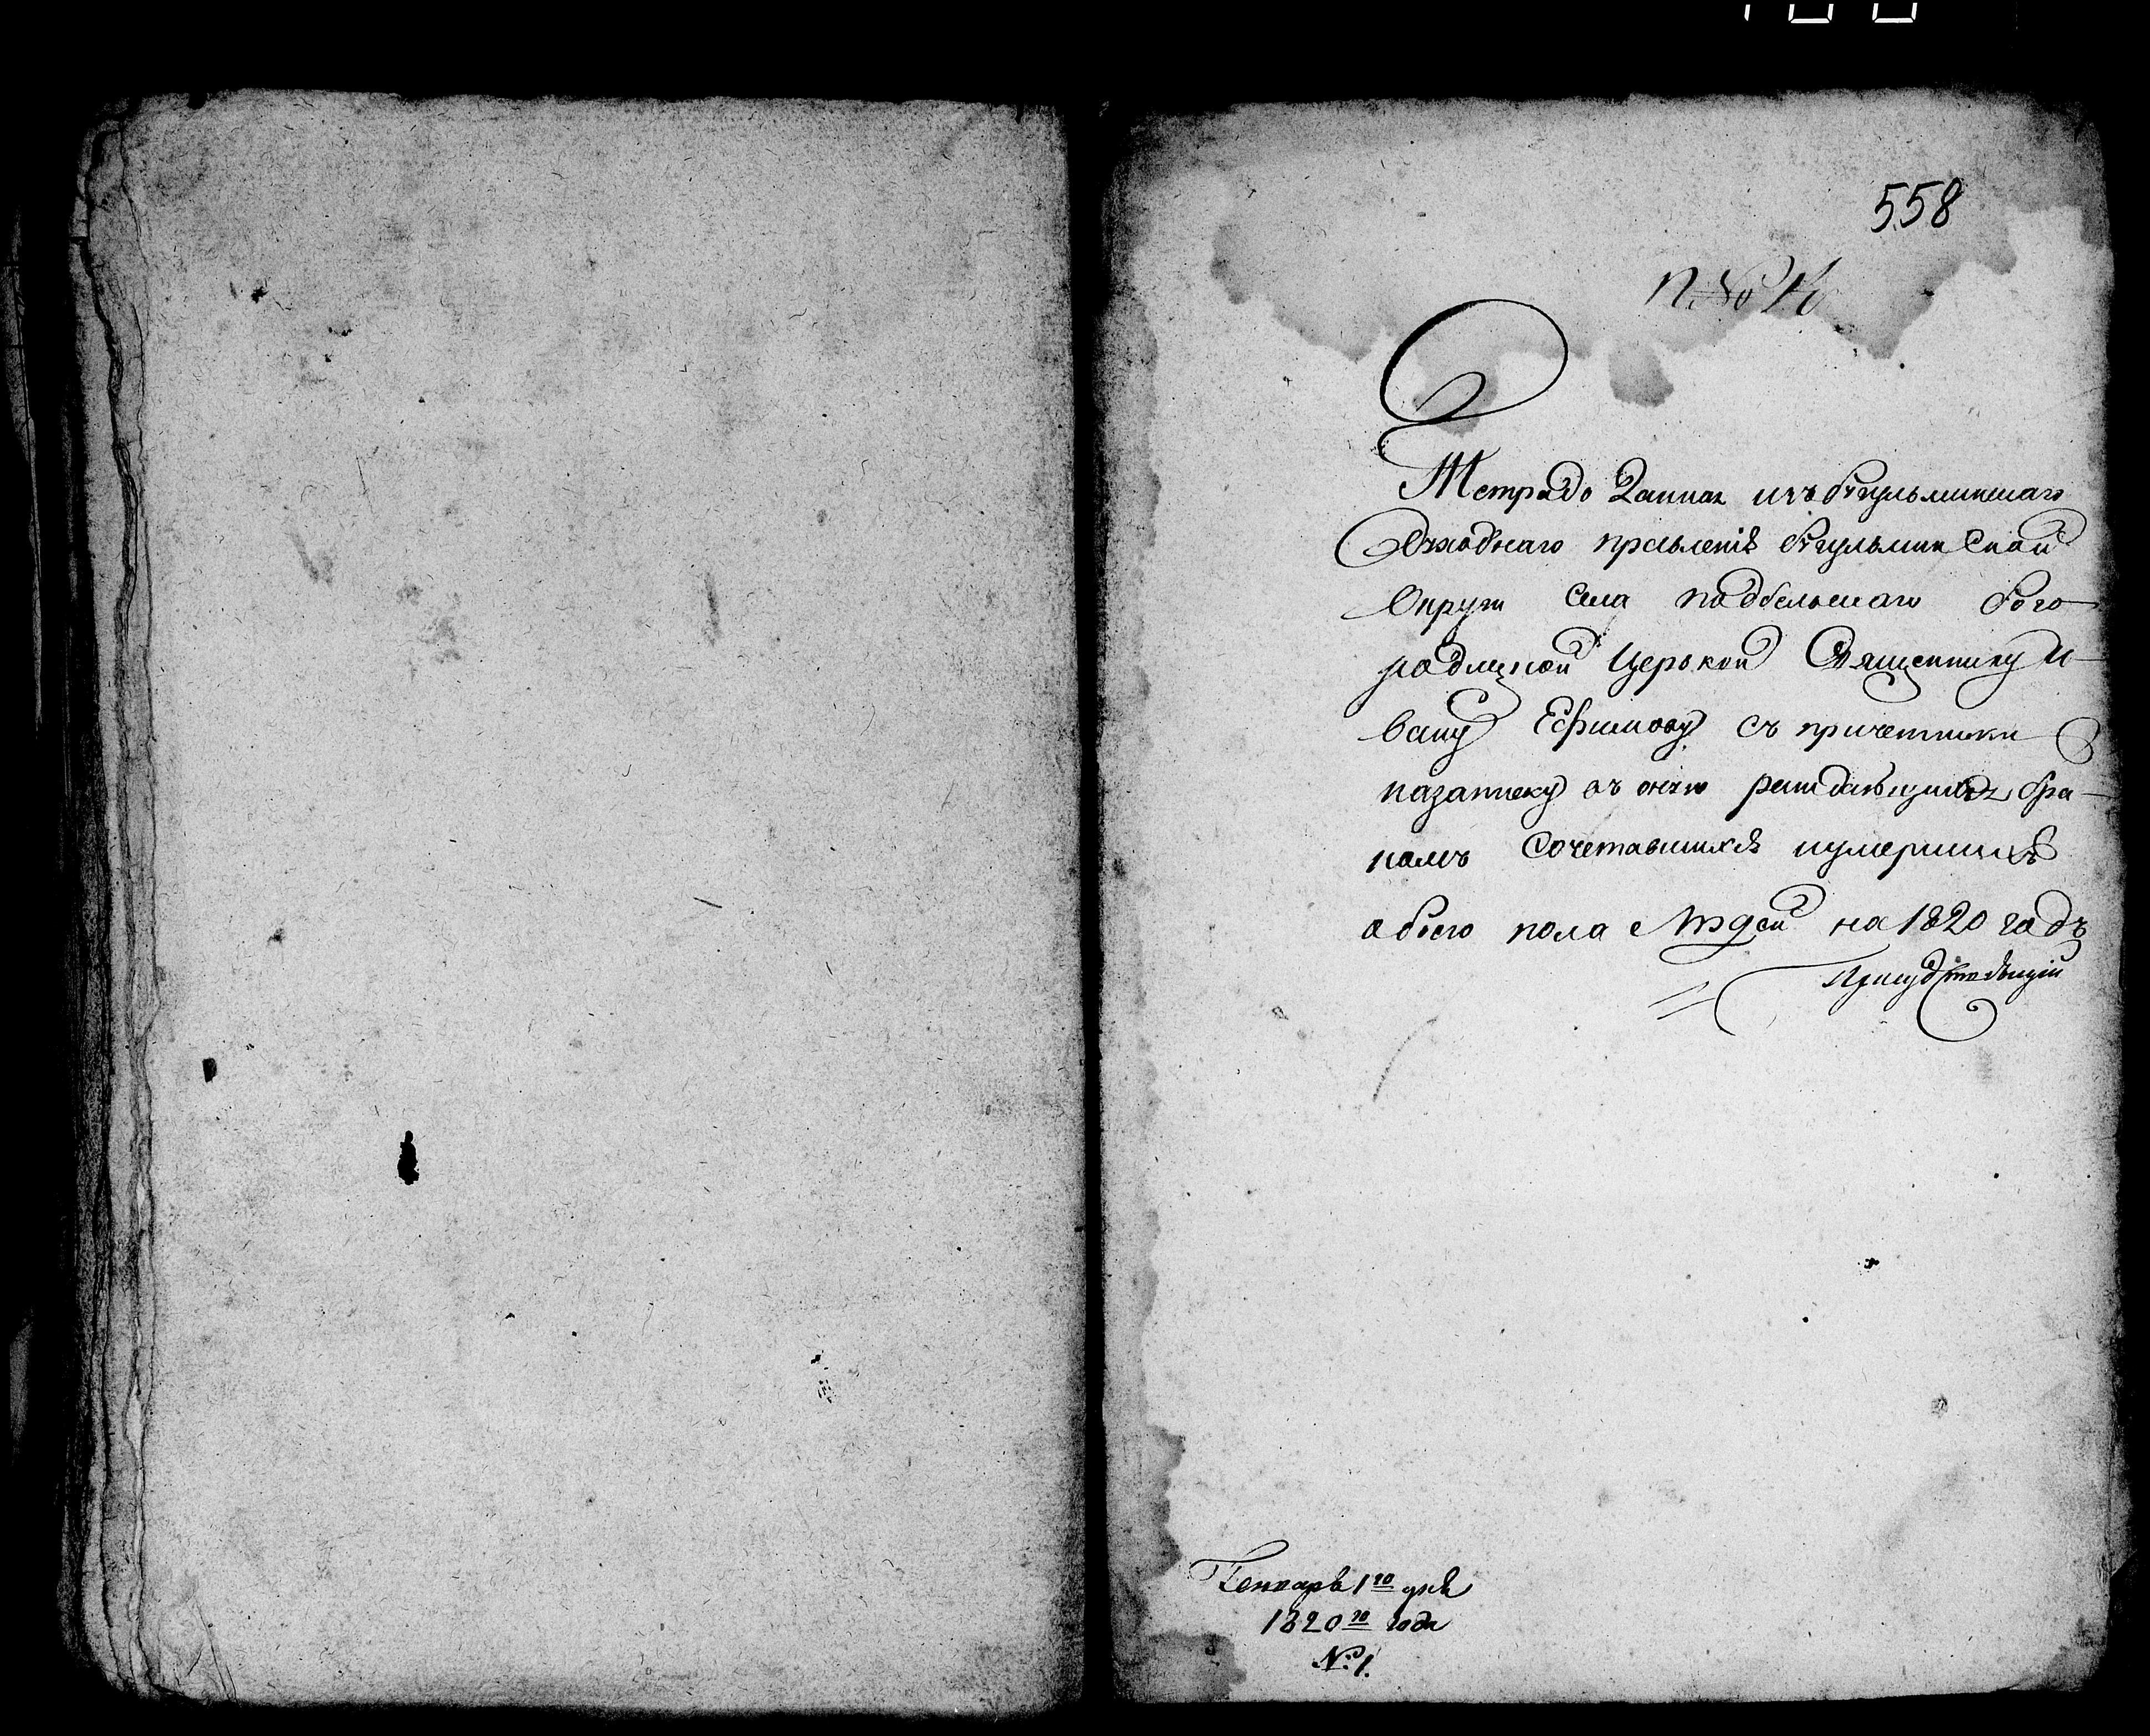 558
Тетрадь Данная изъ Бугульминскаго
Духовнаго правленія Бугульминской
Округи села подбельскаго бого
родицкой Церькви Священнику И
вану Ефимову съ причетники
назаписку въ оную раждающихся бра
комъ Сочетавшихся иумершихъ
обоего пола Людей на 1820 годъ
Присудствующій
Генваря 1го дня
1820го года
№ 1.